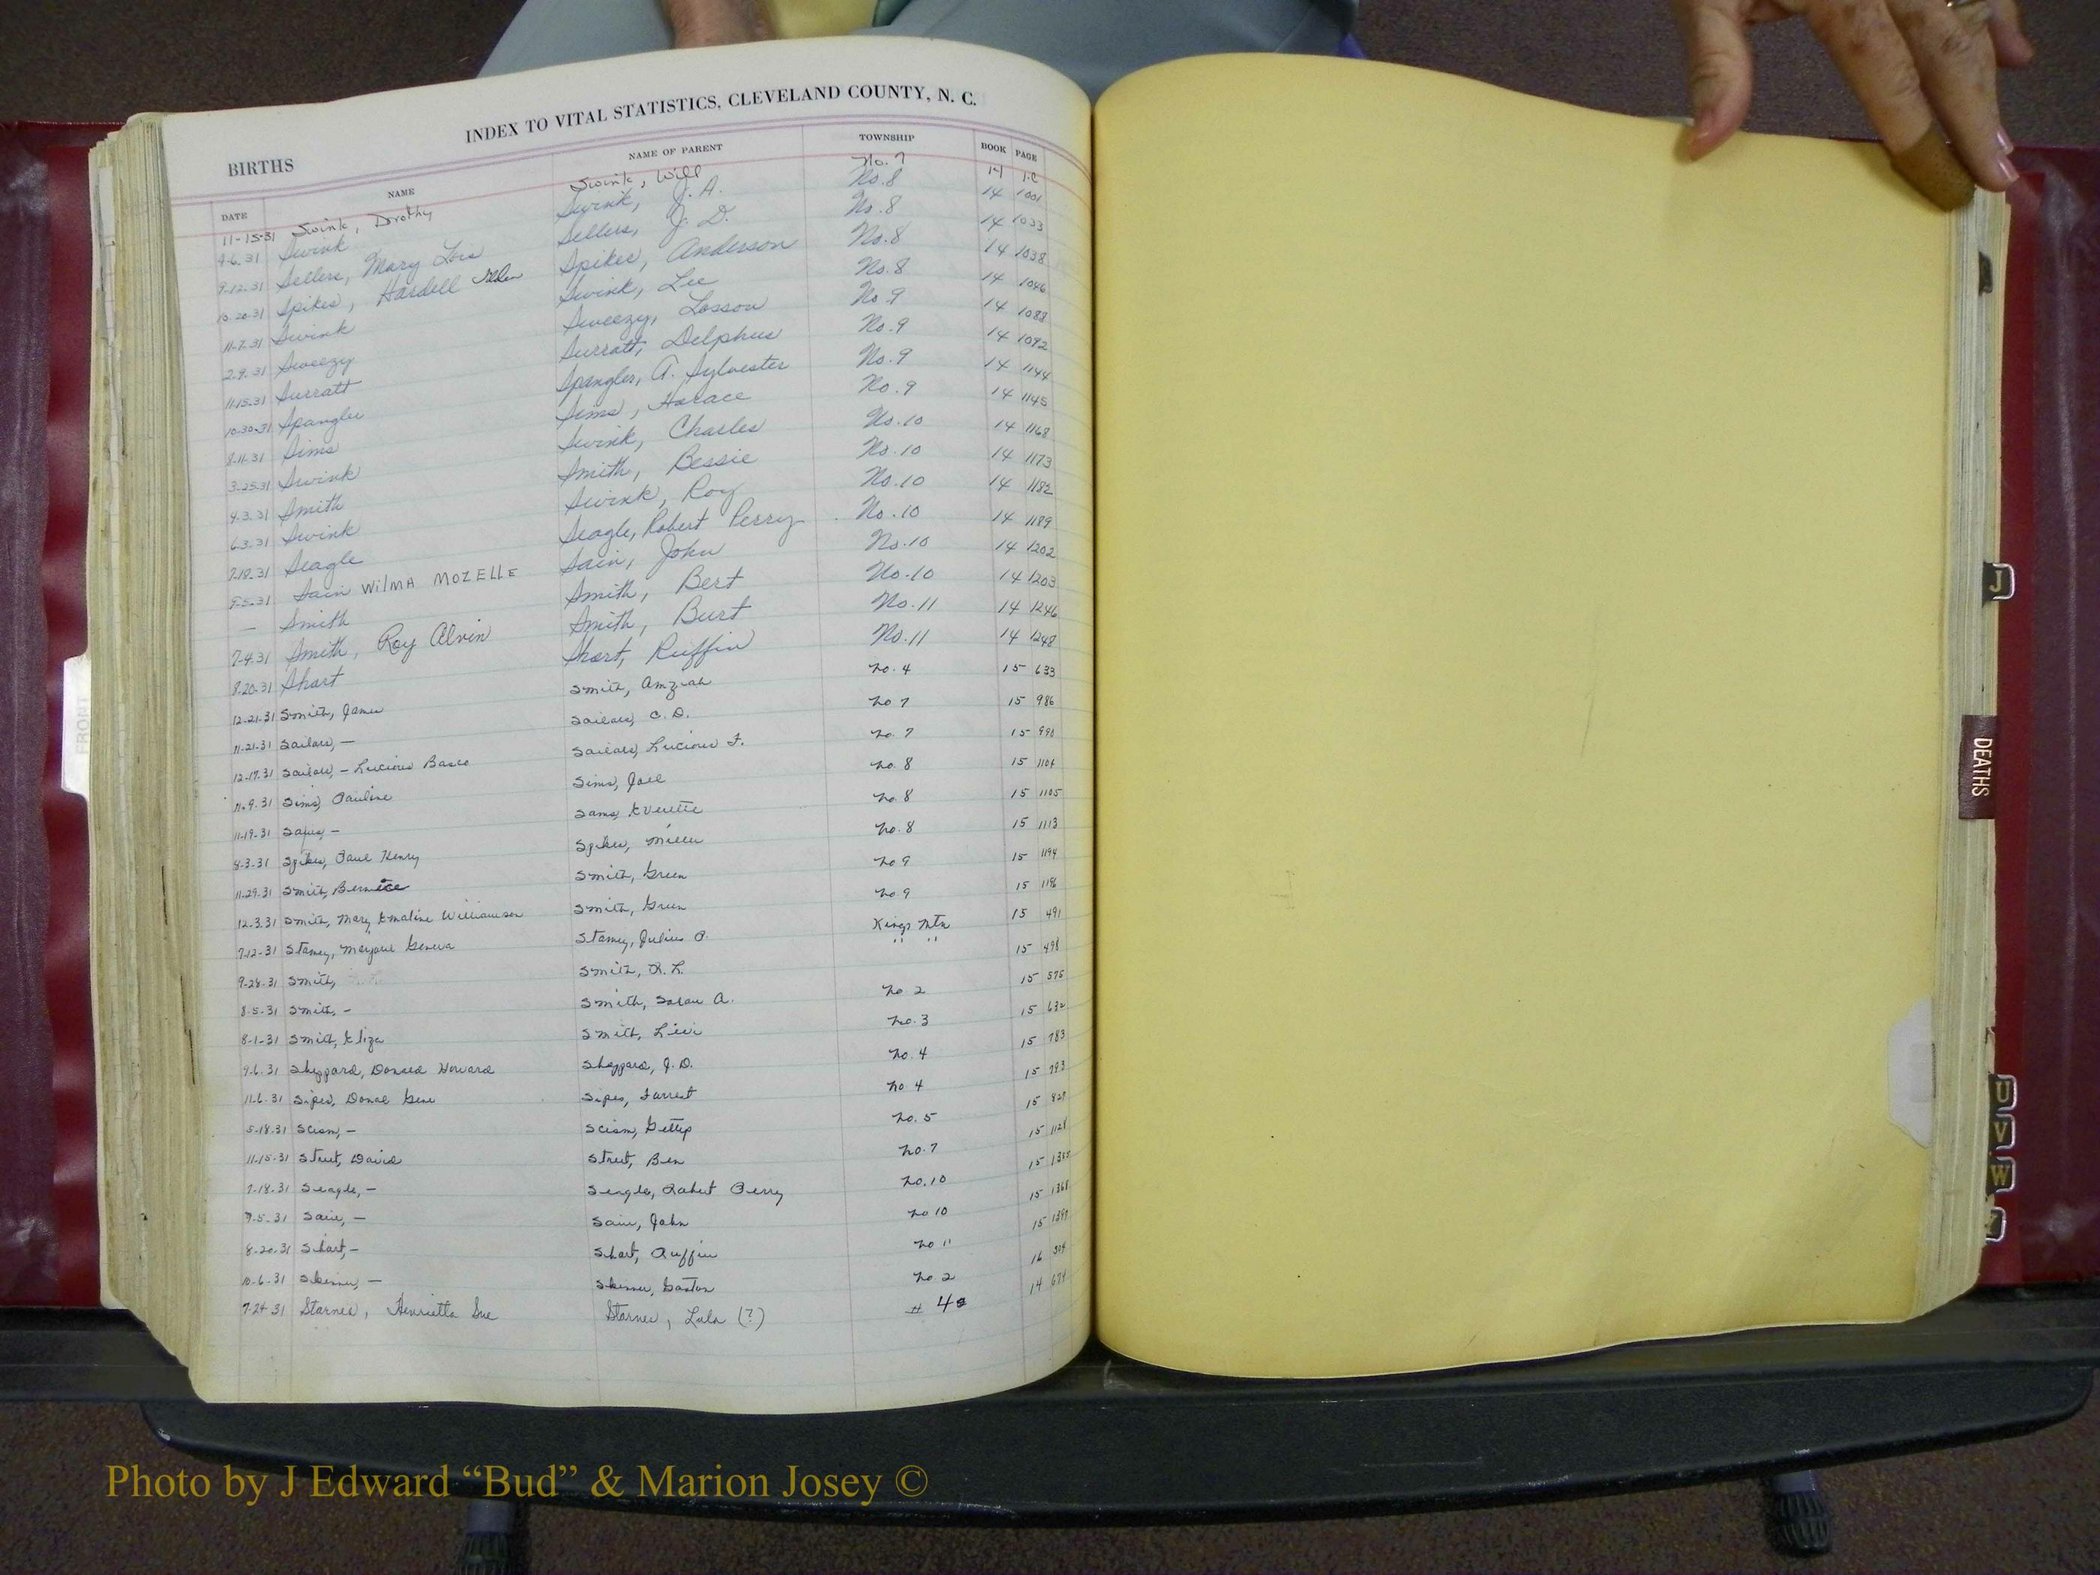 INDEX TO VITAL STATISTICS, CLEVELAND COUNTY, N. C.
BIRTHS
DATE NAME NAME OF PARENT TOWNSHIP BOOK PAGE
11-15-31 Swink, Dorothy Swink, Will No. 7
9-6-31 Swink Swink, J. A. No. 8 14 1001
9-12-31 Sellers, Mary Lois Sellers, J. D. No. 8 14 1033
10-20-31 Spikes, Hardell Spikes, Anderson No. 8 14 1038
11-7-31 Swink Swink, Lee No. 8 14 1046
2-9-31 Sweezy Sweezy, Losson No. 9 14 1088
11-15-31 Surratt Surratt, Delphus No. 9 14 1092
10-30-31 Spangler Spangler, A. Sylvester No. 9 14 1144
8-11-31 Sims Sims, Horace No. 9 14 1145
3-25-31 Swink Swink, Charles No. 10 14 1168
4-3-31 Smith Smith, Bessie No. 10 14 1173
6-3-31 Swink Swink, Roy No. 10 14 1182
7-18-31 Seagle Seagle, Robert Perry No. 10 14 1189
9-5-31 Sain WILMA MOZELLE Sain, John No. 10 14 1202
— Smith Smith, Bert No. 10 14 1203
7-4-31 Smith, Roy Alvin Smith, Burt No. 11 14 1246
8-20-31 Short Short, Ruffin No. 11 14 1248
12-21-31 Smith, James Smith, Amziah No. 4 15 633
11-21-31 Sailors, — Sailors, C. D. No 7 15 986
12-17-31 Sailors, — Lucious Sailors, Lucious F. No. 7 15 990
11-9-31 Sims, Pauline Sims, Joel No. 8 15 1104
11-19-31 — Sams, Everette No. 8 15 1105
8-3-31 Spikes, Paul Henry Spikes, Miller No. 8 15 1113
11-29-31 Smith, Bernice Smith, Green No 9 15 1194
12-3-31 Smith, Mary Emaline Williamson Smith, Green No. 9 15 1196
7-12-31 Stamey, Marjorie Geneva Stamey, Julius P. Kings Mtn 15 491
9-28-31 Smith, Smith, R. L. " " 15 498
8-5-31 Smith, — Smith, Sarah A. No. 2 15 575
8-1-31 Smith, Eliza Smith, Levi No. 3 15 632
9-6-31 Sheppard, Donald Howard Sheppard, J. D. No. 4 15 783
11-6-31 Sipes, Donal Gene Sipes, Forrest No. 4 15 793
5-18-31 Scism, — Scism, Gettys No. 5 15 827
11-15-31 Street, David Street, Ben No. 7 15 1128
7-18-31 Seagle, — Seagle, Robert Perry No. 10 15
9-5-31 Sain, — Sain, John No 10 15 1368
8-20-31 Short, — Short, Ruffin No 11 15
10-6-31 Skinner, — Skinner, Gaston No 2 16 304
7-24-31 Starnes, Henrietta Sue Starnes, Lula (?) # 4 14 674
FRONT
J
DEATHS
U
V
W
Photo by J Edward “Bud” & Marion Josey ©